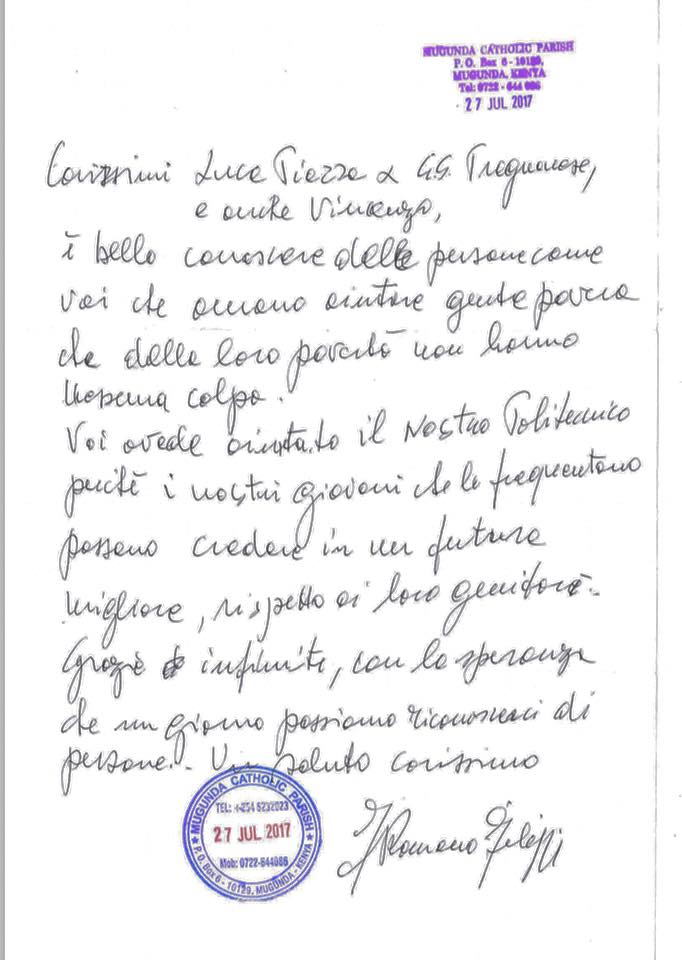 MUGUNDA CATHOLIC PARISH
P. O. Box 6 - 10129,
MUGUNDA, KENYA
Tel: 0722 - 644 086
27 JUL 2017
Carissimi Luca Piazza & G.G. Tregnanese,
e anche Vincenzo,
è bello conoscere delle persone come
voi che amano aiutare gente povera
che della loro povertà non hanno
nessuna colpa.
Voi avede aiutato il Nostro Politecnico
perchè i nostri giovani che lo frequentano
possano credere in un futuro
migliore, rispetto ai loro genitori.
Grazie infinite, con la speranza
che un giorno possiamo riconoscerci di
persona. Un saluto carissimo
MUGUNDA CATHOLIC PARISH
TEL: +254 5232023
27 JUL 2017
Mob: 0722-644086
P. O. Box 6 - 10129, MUGUNDA - KENYA
Romano Filippi